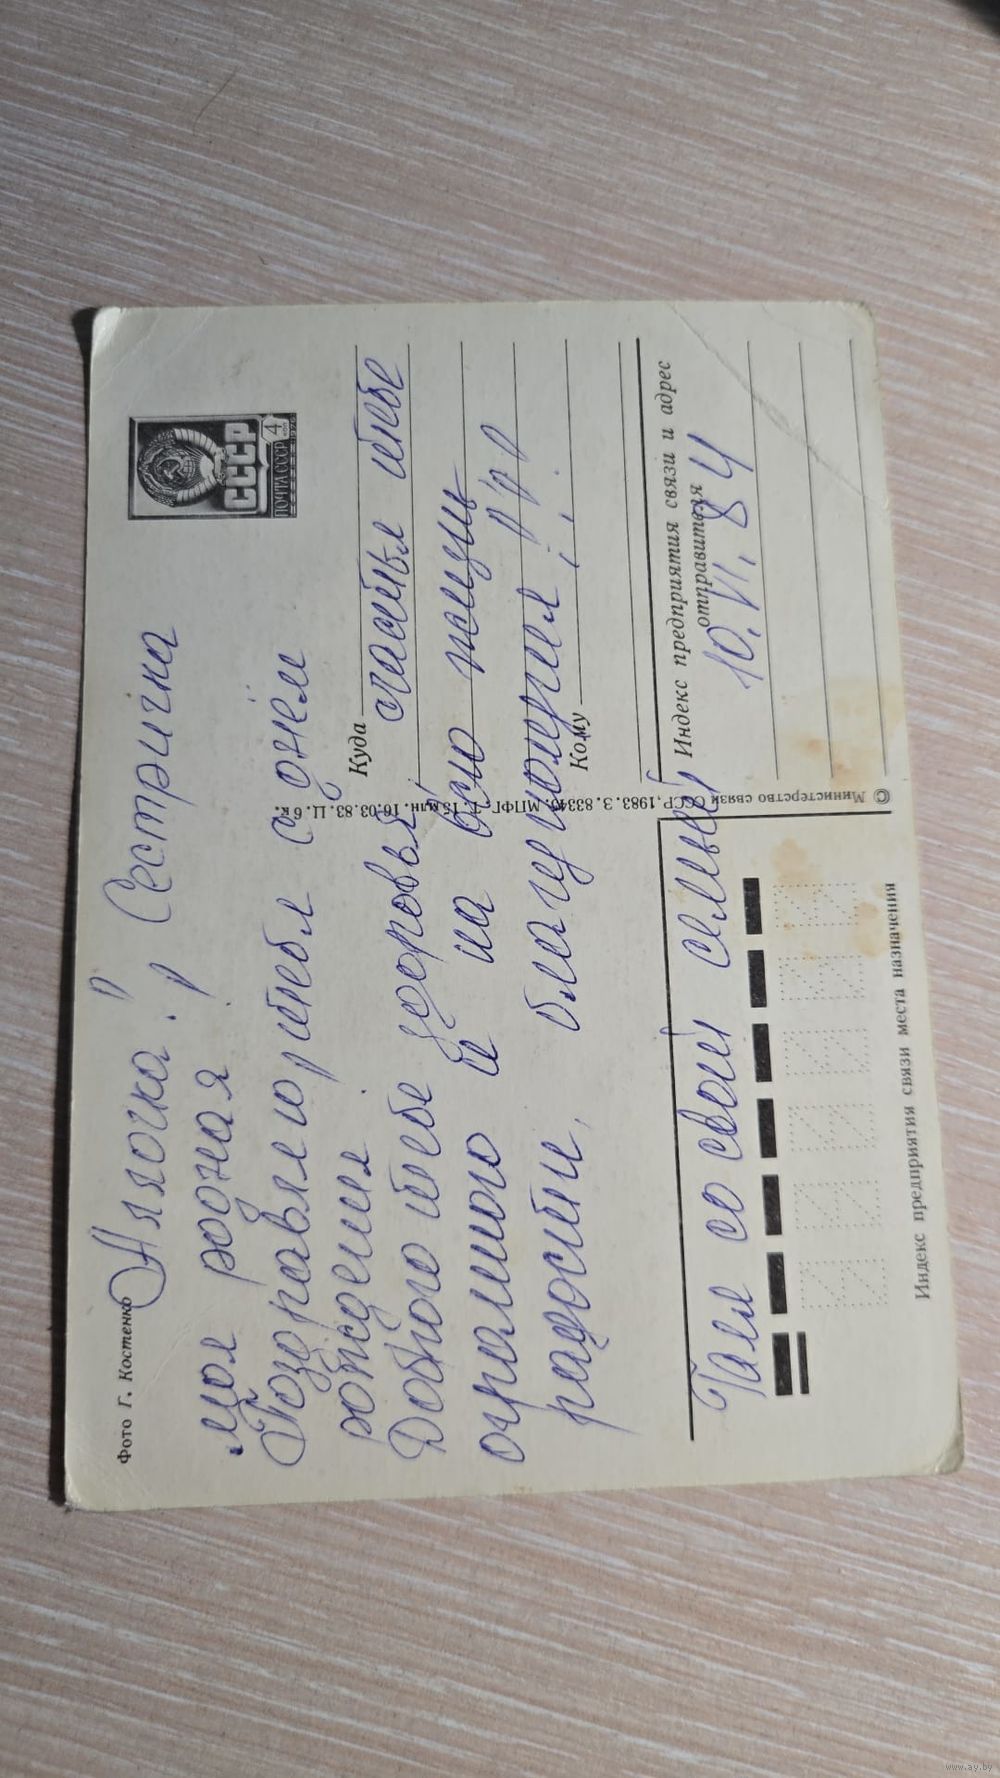 Фото Г. Костенко
Аллочка! Сестричка
моя родная!
Поздравляю тебя с днём
рождения
Доброго тебе здоровья, счастья тебе
огромного и на всю жизнь
радости, благополучия!!!
Галя со своей семьёй
10.VI.84
ПОЧТА СССР
СССР
4
КОП
Куда
Кому
Индекс предприятия связи и адрес
отправителя
© Министерство связи СССР, 1983. З. 83343. МПФГ. Т. 15 млн. 16.03.83. Ц. 6 к.
Индекс предприятия связи места назначения
www.ay.by